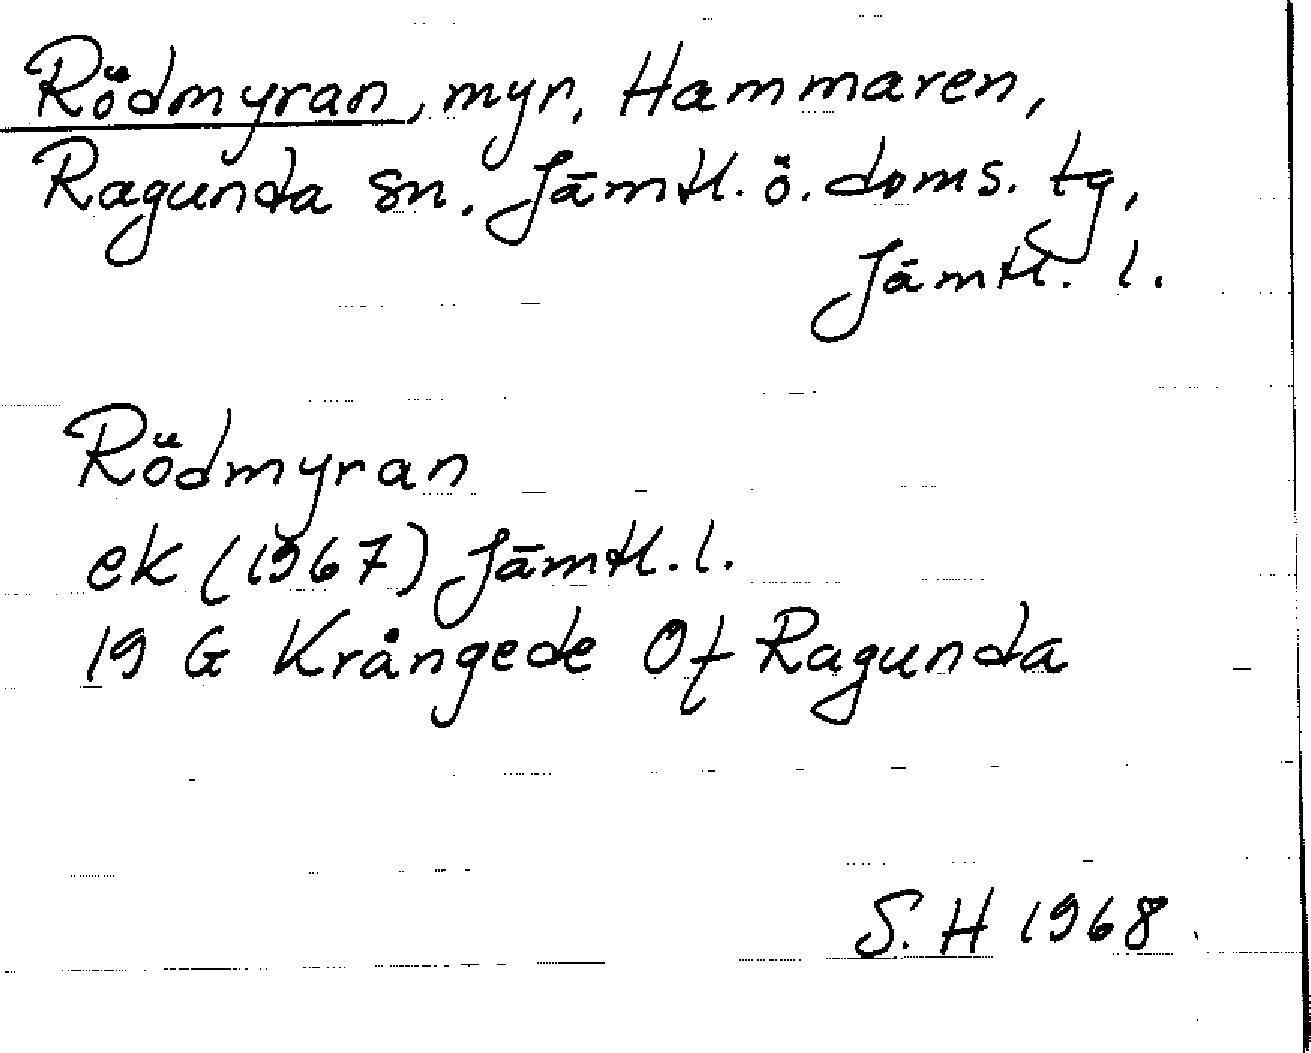 Rödmyran, myr, Hammaren,
Ragunda sn. Jämtl. ö. doms. tg,
Jämtl. l.
Rödmyran
ek (1967) Jämtl. l.
19 G Krångede Of Ragunda
S. H 1968.